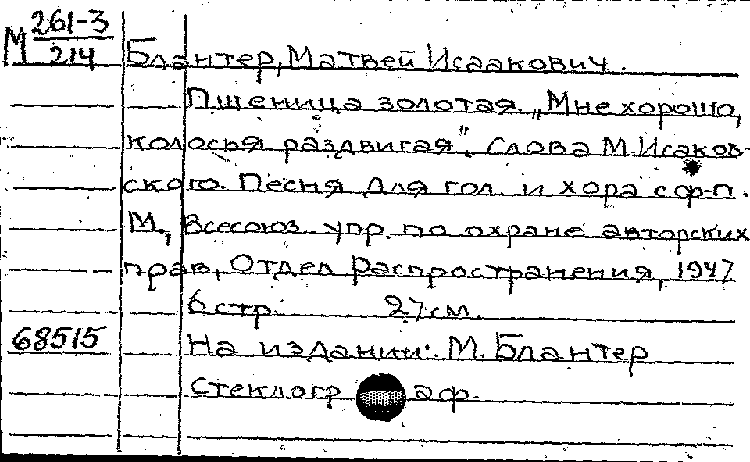 М 261-3
214
Блантер, Матвей Исаакович.
Пшеница золотая. „Мне хорошо,
колосья раздвигая". Слова М. Исаков-
ского. Песня для гол. и хора с ф-п.
М., Всесоюз. упр. по охране авторских
прав, Отдел распространения, 1947
6 стр. 27 см.
68515 На издании: М. Блантер
Стеклограф.